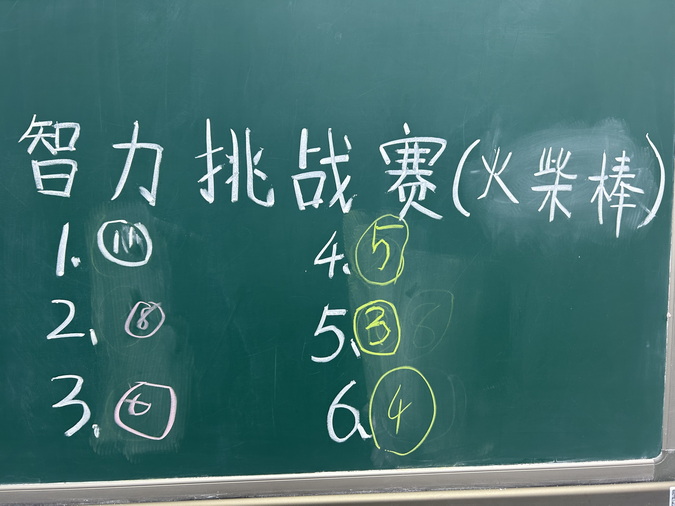 智力挑战赛(火柴棒)
1. 4. 5
2. 8 5. 3
3. 6 6. 4